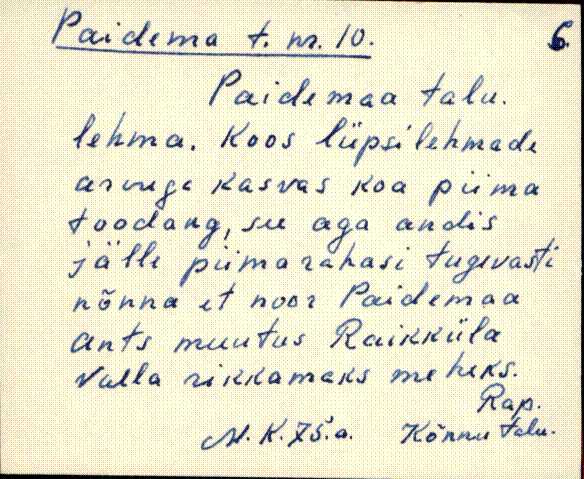 Paidema t. nr. 10.
6.
Paidemaa talu.
lehma. Koos lüpsilehmade
arvuga kasvas koa piima
toodang, see aga andis
jälle piimarahasi tugevasti
nõnna et noor Paidemaa
ants muutus Raikküla
valla rikkamaks meheks.
Rap.
M. K. 75.a. Kõnnu talu.